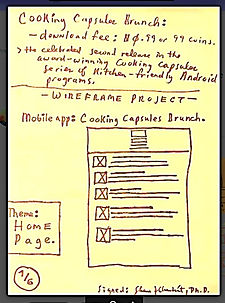 Cooking Capsules Brunch:
- download fee: $0.99 or 99 coins.
> the celebrated second release in the
award-winning Cooking Capsules
series of Kitchen-friendly Android
programs.
- WIREFRAME PROJECT -
Mobile app: Cooking Capsules Brunch.
Theme:
Home
Page.
1/6
Signed: Ph.D.